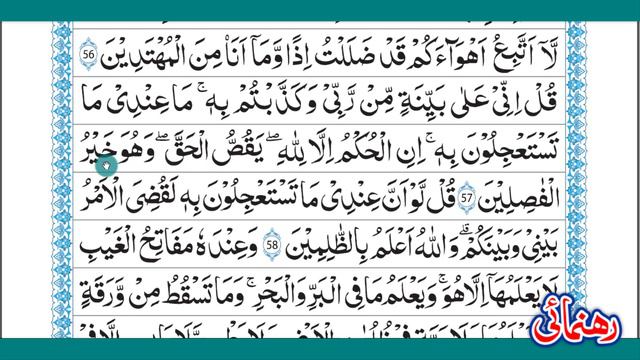 لَّاۤ اَتَّبِعُ اَهْوَآءَكُمْ قَدْ ضَلَلْتُ اِذًا وَّمَاۤ اَنَا۠ مِنَ الْمُهْتَدِيْنَ 56
قُلْ اِنِّىْ عَلٰى بَيِّنَةٍ مِّنْ رَّبِّىْ وَكَذَّبْتُمْ بِهٖ ؕ مَا عِنْدِىْ مَا
تَسْتَعْجِلُوْنَ بِهٖ ؕ اِنِ الْحُكْمُ اِلَّا لِلّٰهِ ؕ يَقُصُّ الْحَقَّ ؕ وَهُوَ خَيْرُ
الْفٰصِلِيْنَ 57 قُلْ لَّوْ اَنَّ عِنْدِىْ مَا تَسْتَعْجِلُوْنَ بِهٖ لَقُضِىَ الْاَمْرُ
بَيْنِىْ وَبَيْنَكُمْ ؕ وَاللّٰهُ اَعْلَمُ بِالظّٰلِمِيْنَ 58 وَعِنْدَهٗ مَفَاتِحُ الْغَيْبِ
لَا يَعْلَمُهَاۤ اِلَّا هُوَ ؕ وَيَعْلَمُ مَا فِى الْبَرِّ وَالْبَحْرِ ؕ وَمَا تَسْقُطُ مِنْ وَّرَقَةٍ
رهنمائی